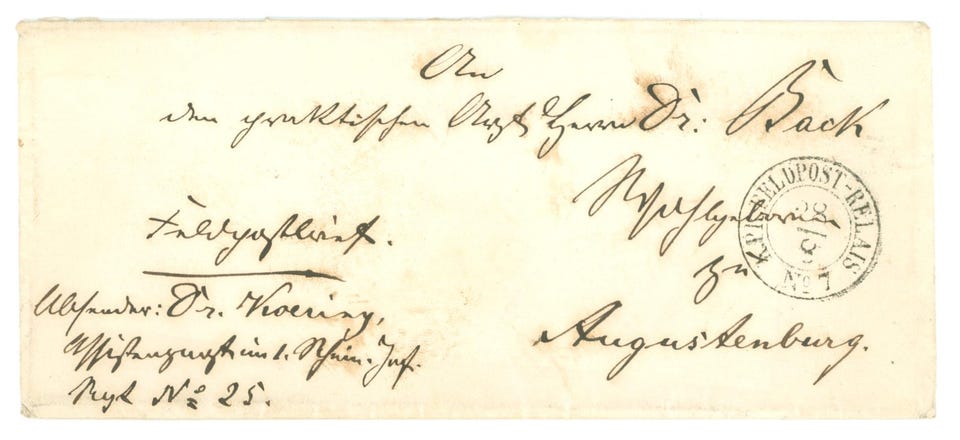 An
den praktischen Arzt Herrn Dr: Back
Wohlgeboren
zu
Augustenburg.
Feldpostbrief.
Absender: Dr.
Assistenzarzt im 1. Rhein. Inf.
Regt No 25.
K.PR.FELDPOST-RELAIS
28/3
No 7